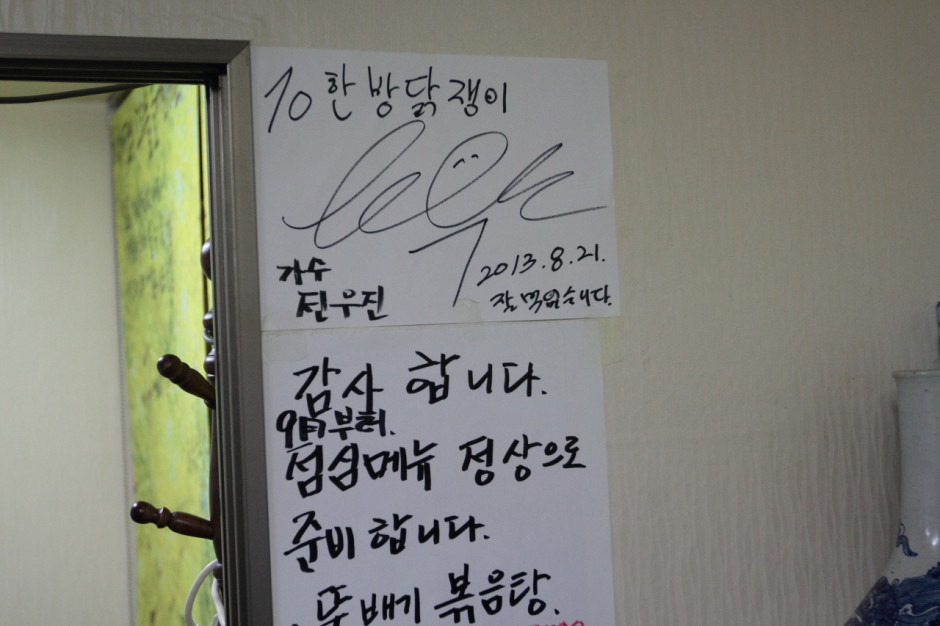 10한방닭쟁이
가수
진우진
2013.8.21.
잘먹었습니다.
감사 합니다.
9月부터.
점심메뉴 정상으로
준비 합니다.
뚝배기 볶음탕.